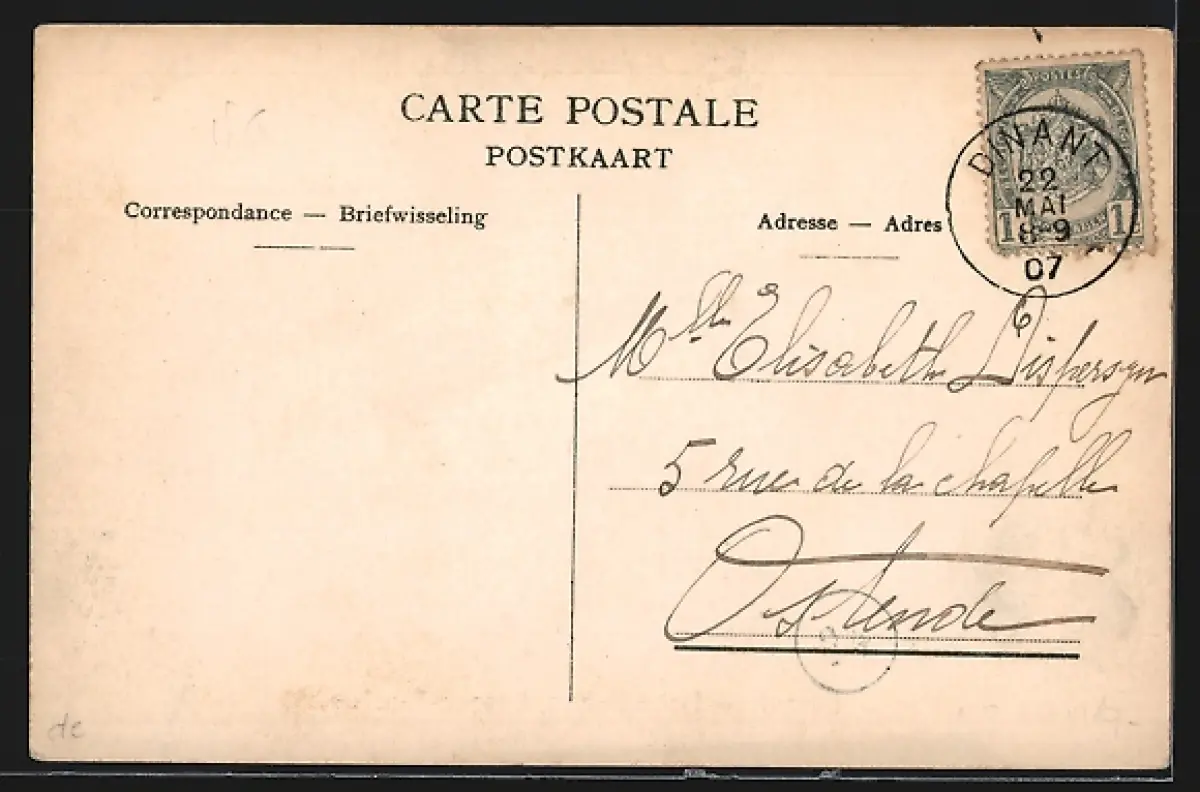 CARTE POSTALE
POSTKAART
Correspondance — Briefwisseling
Adresse — Adres
POSTES
1 1
DINANT
22
MAI
8-9
07
Mlle Elisabeth Dispersyn
5 rue de la chapelle
Ostende
de